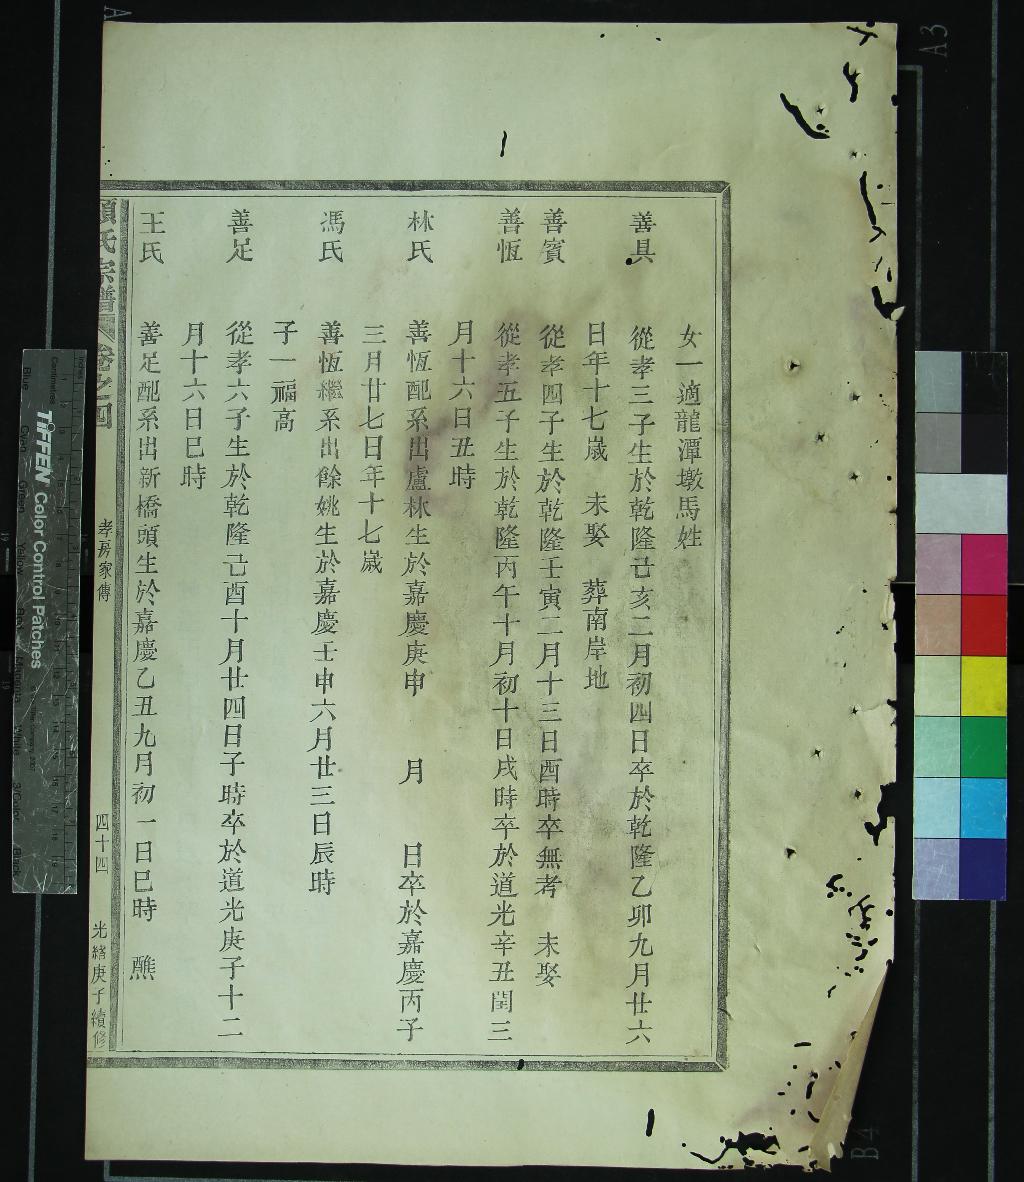 女一適龍潭墩馬姓
善具　從孝三子生於乾隆己亥二月初四日卒於乾隆乙卯九月廿六
日年十七歲　未娶　葬南岸地
善賓　從孝四子生於乾隆壬寅二月十三日酉時卒無考　未娶
善恆　從孝五子生於乾隆丙午十月初十日戌時卒於道光辛丑閏三
月十六日丑時
林氏　善恆配系出盧林生於嘉慶庚申　月　日卒於嘉慶丙子
三月廿七日年十七歲
馮氏　善恆繼系出餘姚生於嘉慶壬申六月廿三日辰時
子一福高
善足　從孝六子生於乾隆己酉十月廿四日子時卒於道光庚子十二
月十六日巳時
王氏　善足配系出新橋頭生於嘉慶乙丑九月初一日巳時　醮
氏宗譜　卷之四　孝房家傳　四十四　光緒庚子續修
TIFFEN Color Control Patches
A3
B4